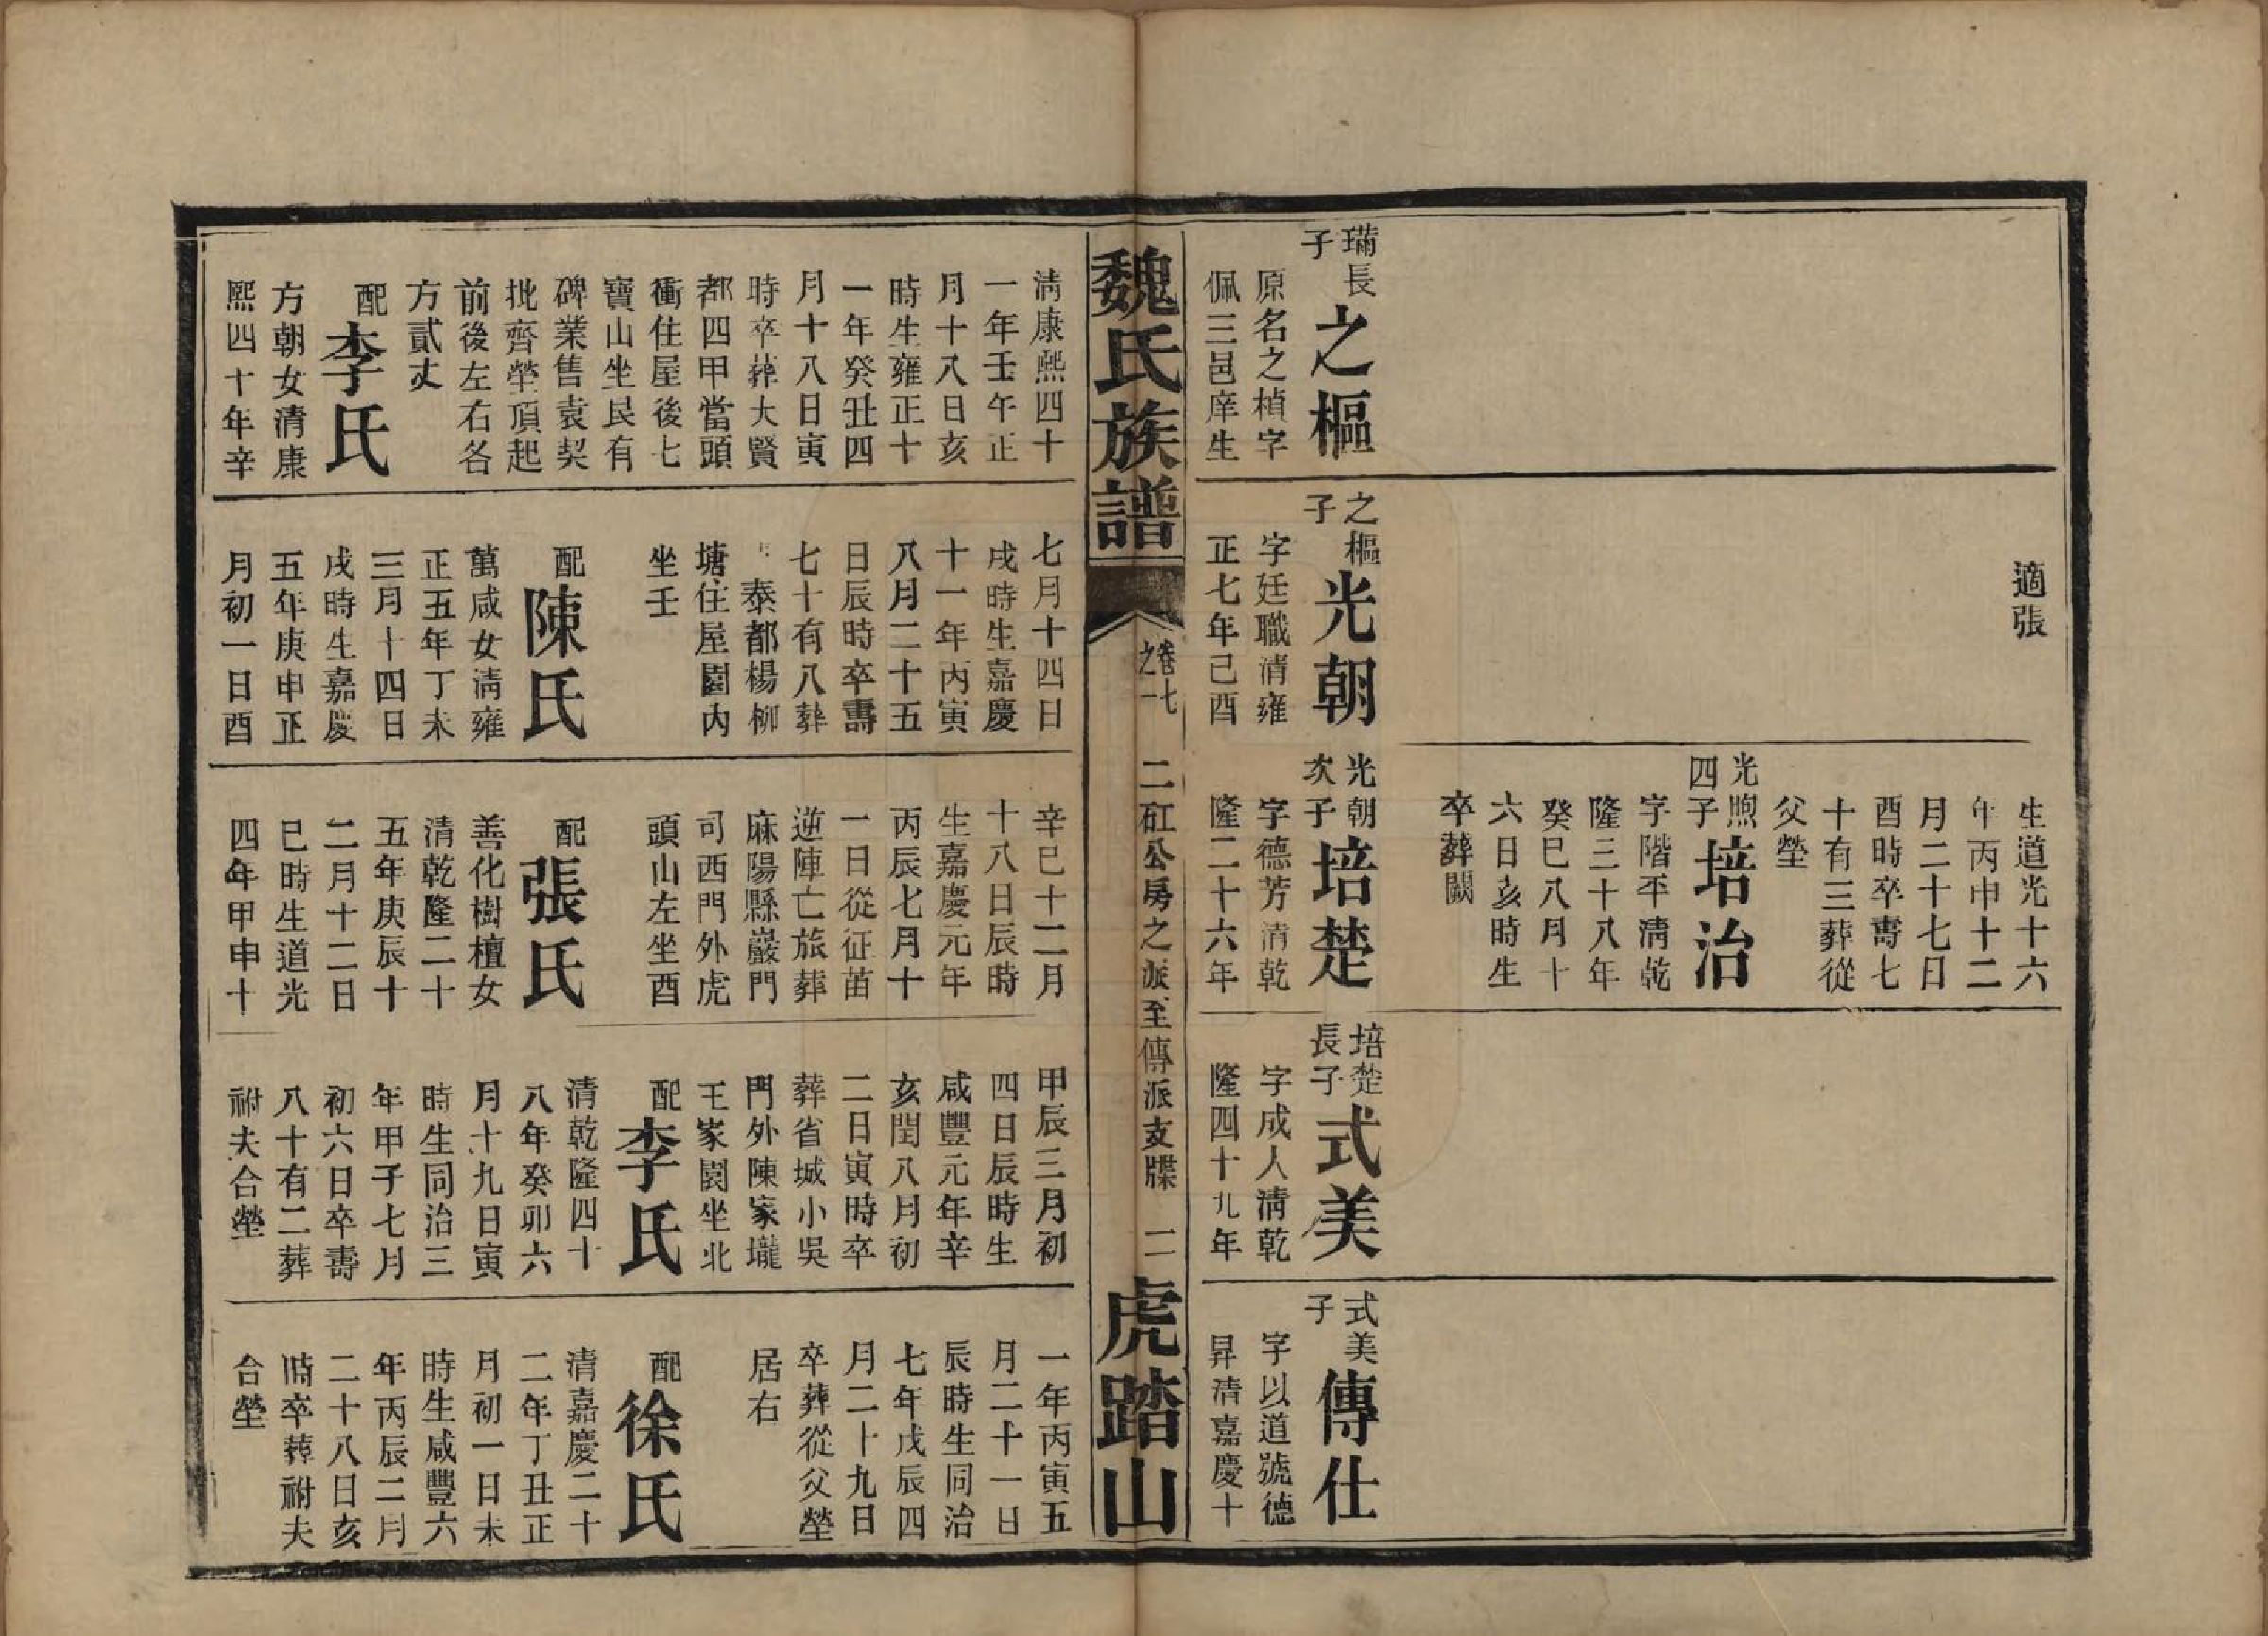 適張
生道光十六
年丙申十二
月二十七日
酉時卒壽七
十有三葬從
父塋
光煦
四子
培治
字階平清乾
隆三十八年
癸巳八月十
六日亥時生
卒葬闕
瑞長
子
之樞
原名之楨字
佩三邑庠生
之樞
子
光朝
字廷職清雍
正七年己酉
光朝
次子
培楚
字德芳清乾
隆二十六年
培楚
長子
式美
字成人清乾
隆四十九年
式美
子
傳仕
字以道號德
昇清嘉慶十
魏氏族譜
卷七
之一
二矼公房之派至傳派支牒
二
虎踏山
清康熙四十
一年壬午正
月十八日亥
時生雍正十
一年癸丑四
月十八日寅
時卒葬大賢
都四甲當頭
衝住屋後七
寶山坐艮有
碑業售袁契
批齊塋頂起
前後左右各
方貳丈
配
李氏
方朝女清康
熙四十年辛
七月十四日
戌時生嘉慶
十一年丙寅
八月二十五
日辰時卒壽
七十有八葬
泰都楊柳
塘住屋園內
坐壬
配
陳氏
萬咸女清雍
正五年丁未
三月十四日
戌時生嘉慶
五年庚申正
月初一日酉
辛巳十二月
十八日辰時
生嘉慶元年
丙辰七月十
一日從征苗
逆陣亡旅葬
麻陽縣巖門
司西門外虎
頭山左坐酉
配
張氏
善化樹檀女
清乾隆二十
五年庚辰十
二月十二日
巳時生道光
四年甲申十
甲辰三月初
四日辰時生
咸豐元年辛
亥閏八月初
二日寅時卒
葬省城小吳
門外陳家壠
王家園坐北
配
李氏
清乾隆四十
八年癸卯六
月十九日寅
時生同治三
年甲子七月
初六日卒壽
八十有二葬
祔夫合塋
一年丙寅五
月二十一日
辰時生同治
七年戊辰四
月二十九日
卒葬從父塋
居右
配
徐氏
清嘉慶二十
二年丁丑正
月初一日未
時生咸豐六
年丙辰二月
二十八日亥
時卒葬祔夫
合塋